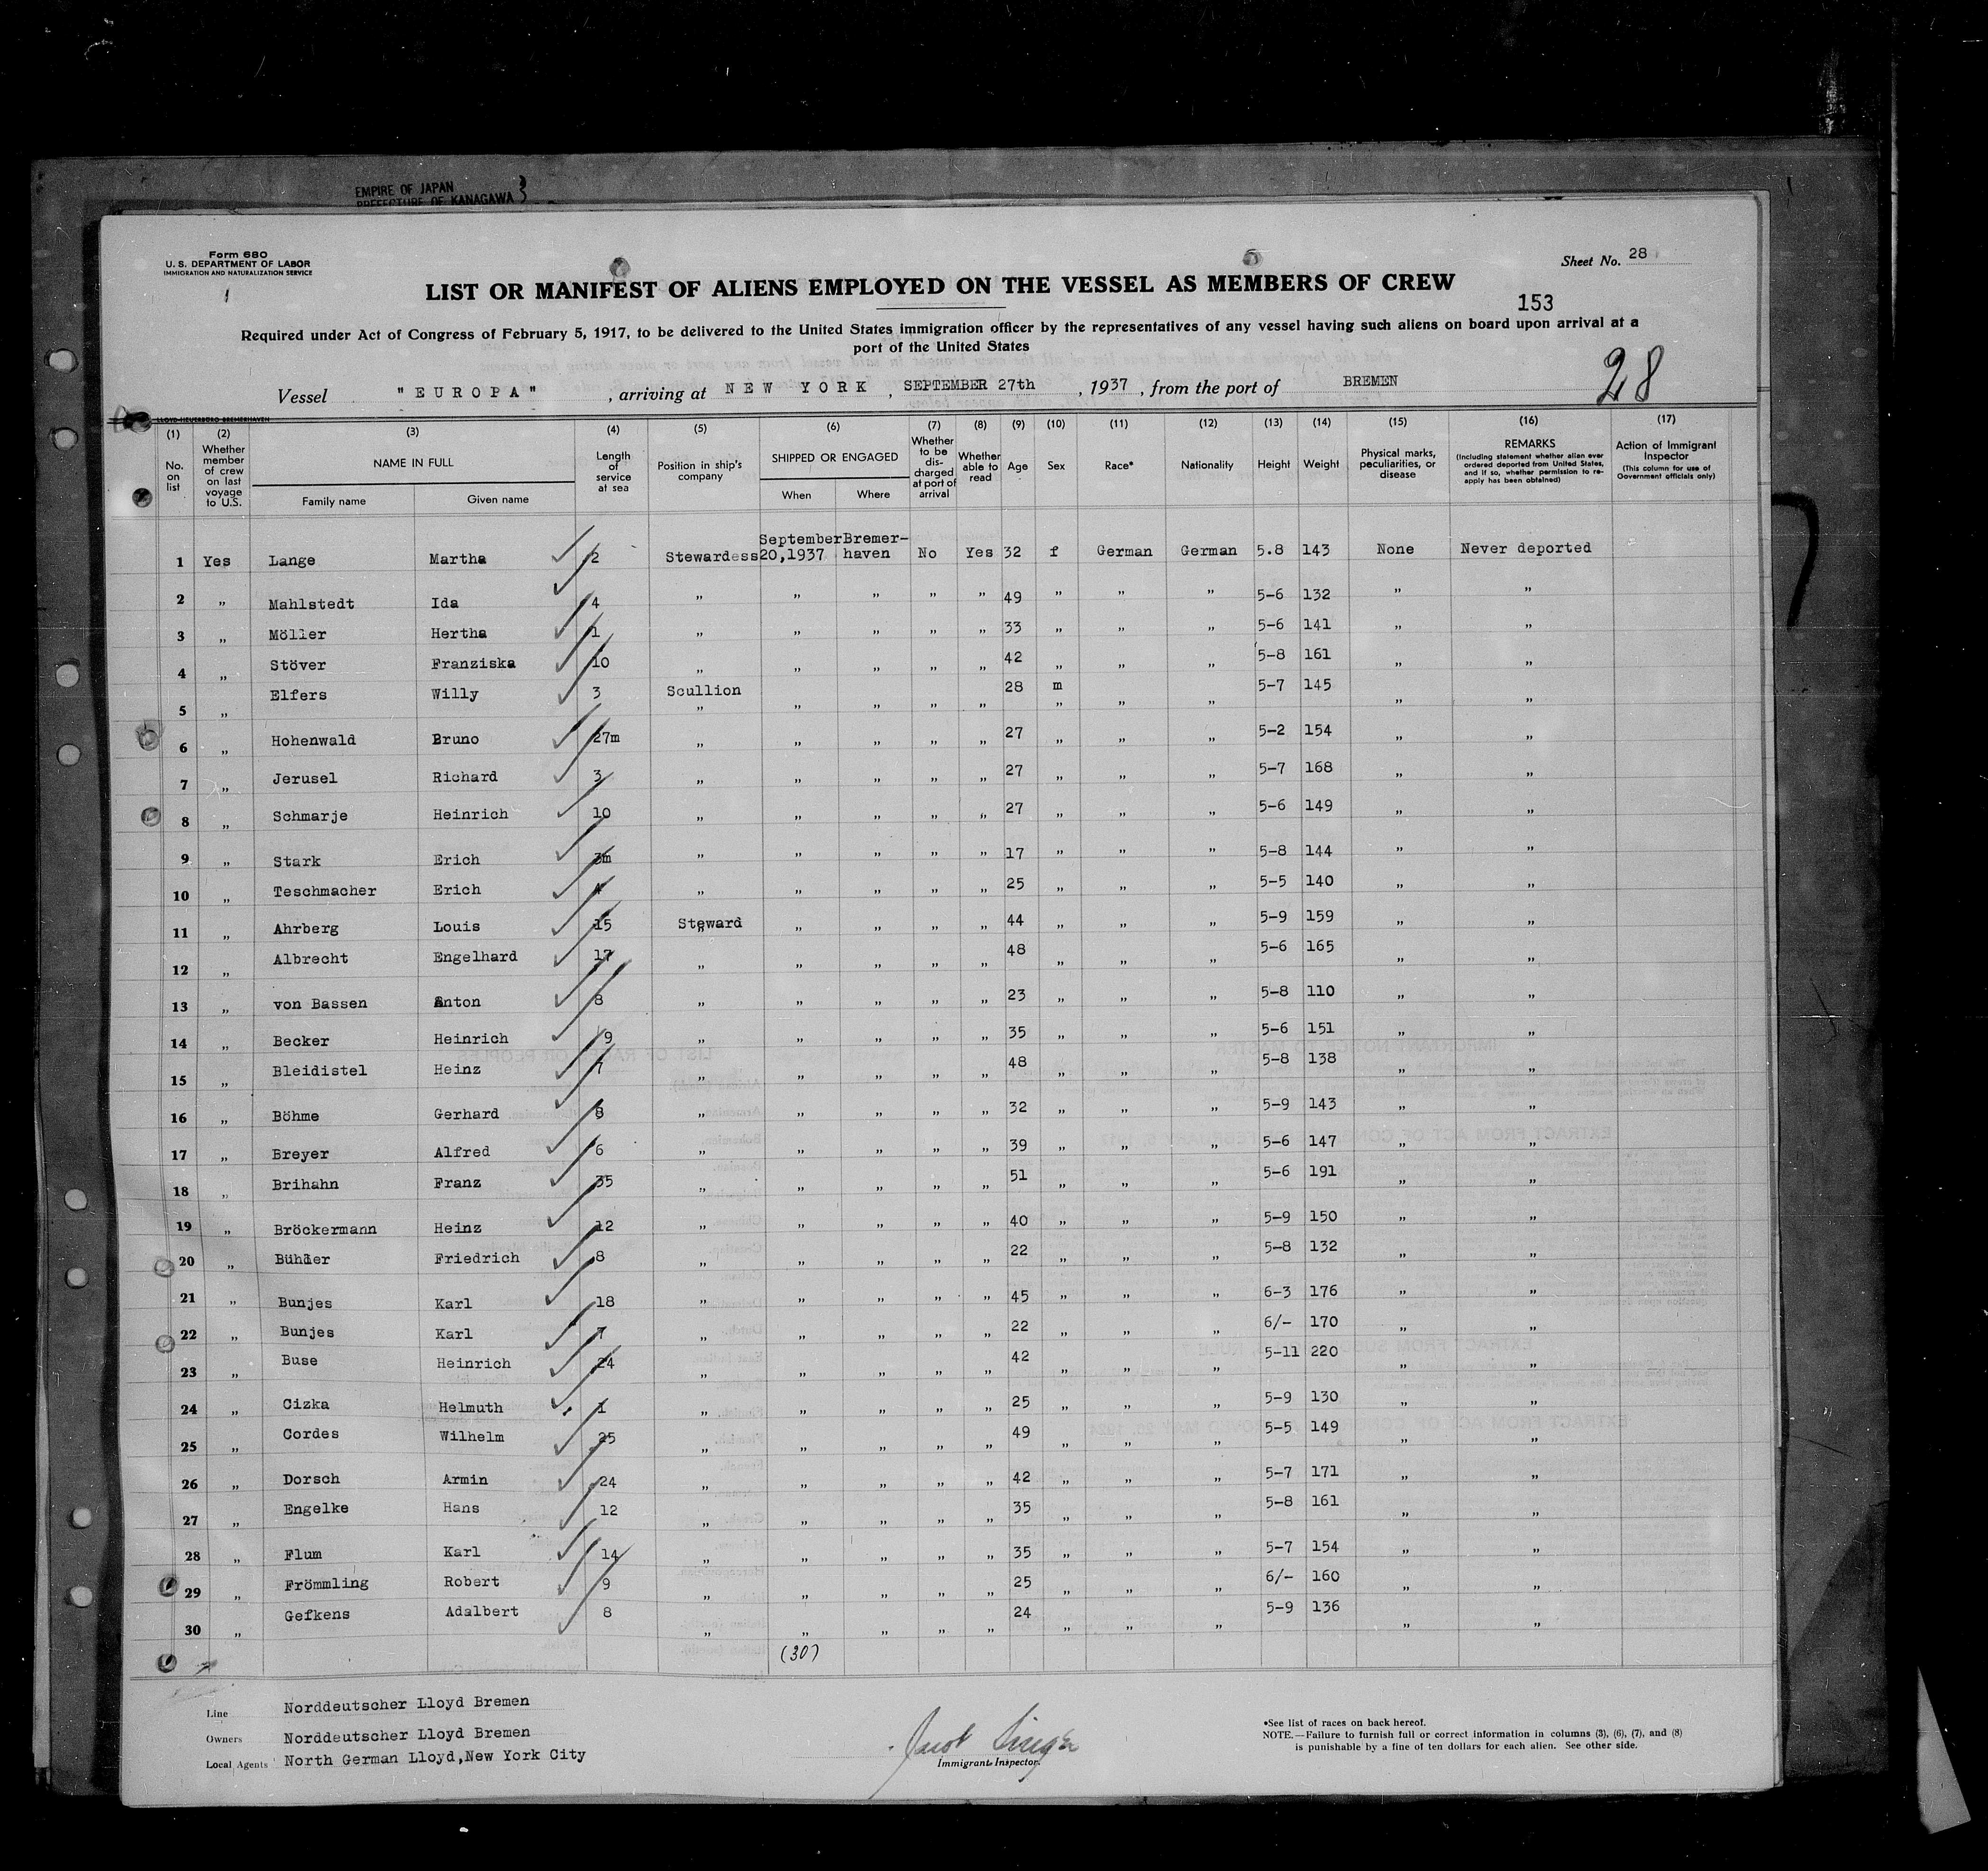 EMPIRE OF JAPAN
PREFECTURE OF KANAGAWA
Form 680
U. S. DEPARTMENT OF LABOR
IMMIGRATION AND NATURALIZATION SERVICE
Sheet No. 28
LIST OR MANIFEST OF ALIENS EMPLOYED ON THE VESSEL AS MEMBERS OF CREW
153
Required under Act of Congress of February 5, 1917, to be delivered to the United States immigration officer by the representatives of any vessel having such aliens on board upon arrival at a
port of the United States
28
Vessel "EUROPA", arriving at NEW YORK, SEPTEMBER 27th, 1937, from the port of BREMEN
LLOYD-HEUERBÜRO BREMERHAVEN
(1) (2) (3) (4) (5) (6) (7) (8) (9) (10) (11) (12) (13) (14) (15) (16) (17)
No. on list
Whether member of crew on last voyage to U.S.
NAME IN FULL
Family name Given name
Length of service at sea
Position in ship's company
SHIPPED OR ENGAGED
When Where
Whether to be discharged at port of arrival
Whether able to read
Age
Sex
Race*
Nationality
Height
Weight
Physical marks, peculiarities, or disease
REMARKS
(Including statement whether alien ever ordered deported from United States, and if so, whether permission to re-apply has been obtained)
Action of Immigrant Inspector
(This column for use of Government officials only)
1 Yes Lange Martha 2 Stewardess September 20,1937 Bremer-haven No Yes 32 f German German 5.8 143 None Never deported
2 " Mahlstedt Ida 4 " " " " " 49 " " " 5-6 132 " "
3 " Möller Hertha 1 " " " " " 33 " " " 5-6 141 " "
4 " Stöver Franziska 10 " " " " " 42 " " " 5-8 161 " "
5 " Elfers Willy 3 Scullion " " " " " 28 m " " " 5-7 145 " "
6 " Hohenwald Bruno 27m " " " " " 27 " " " 5-2 154 " "
7 " Jerusel Richard 3 " " " " " 27 " " " 5-7 168 " "
8 " Schmarje Heinrich 10 " " " " " 27 " " " 5-6 149 " "
9 " Stark Erich 3m " " " " " 17 " " " 5-8 144 " "
10 " Teschmacher Erich 4 " " " " " 25 " " " 5-5 140 " "
11 " Ahrberg Louis 15 Steward " " " " 44 " " " 5-9 159 " "
12 " Albrecht Engelhard 17 " " " " " 48 " " " 5-6 165 " "
13 " von Bassen Anton 8 " " " " " 23 " " " 5-8 110 " "
14 " Becker Heinrich 19 " " " " " 35 " " " 5-6 151 " "
15 " Bleidistel Heinz 7 " " " " " 48 " " " 5-8 138 " "
16 " Böhme Gerhard 8 " " " " " 32 " " " 5-9 143 " "
17 " Breyer Alfred 6 " " " " " 39 " " " 5-6 147 " "
18 " Brihahn Franz 35 " " " " " 51 " " " 5-6 191 " "
19 " Bröckermann Heinz 12 " " " " " 40 " " " 5-9 150 " "
20 " Bühler Friedrich 8 " " " " " 22 " " " 5-8 132 " "
21 " Bunjes Karl 18 " " " " " 45 " " " 6-3 176 " "
22 " Bunjes Karl 7 " " " " " 22 " " " 6/- 170 " "
23 " Buse Heinrich 24 " " " " " 42 " " " 5-11 220 " "
24 " Cizka Helmuth 1 " " " " " 25 " " " 5-9 130 " "
25 " Cordes Wilhelm 25 " " " " " 49 " " " 5-5 149 " "
26 " Dorsch Armin 24 " " " " " 42 " " " 5-7 171 " "
27 " Engelke Hans 12 " " " " " 35 " " " 5-8 161 " "
28 " Flum Karl 14 " " " " " 35 " " " 5-7 154 " "
29 " Frömmling Robert 9 " " " " " 25 " " " 6/- 160 " "
30 " Gefkens Adalbert 8 " " " " " 24 " " " 5-9 136 " "
(30)
Line Norddeutscher Lloyd Bremen
Owners Norddeutscher Lloyd Bremen
Local Agents North German Lloyd,New York City
Immigrant Inspector.
*See list of races on back hereof.
NOTE.—Failure to furnish full or correct information in columns (3), (6), (7), and (8)
is punishable by a fine of ten dollars for each alien. See other side.